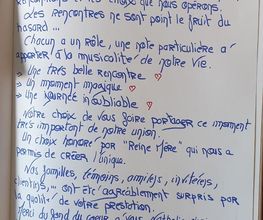 les choix que nous opérons.
Les rencontres ne sont point le fruit du
hasard ...
Chacun a un rôle, une note particulière à
apporter à la musicalité de notre vie.
→ Une très belle rencontre ♡
→ Un moment magique ♡
→ Une journée inoubliable ♡
Notre choix de vous faire partager ce moment
très important de notre union.
Un choix honoré par "Reine Mère" qui nous a
permis de créer l'unique.
Nos familles, témoins, ami(e)s, invité(e)s,
... ont été agréablement surpris par
la qualité de votre prestation.
Merci du fond du cœur à vous